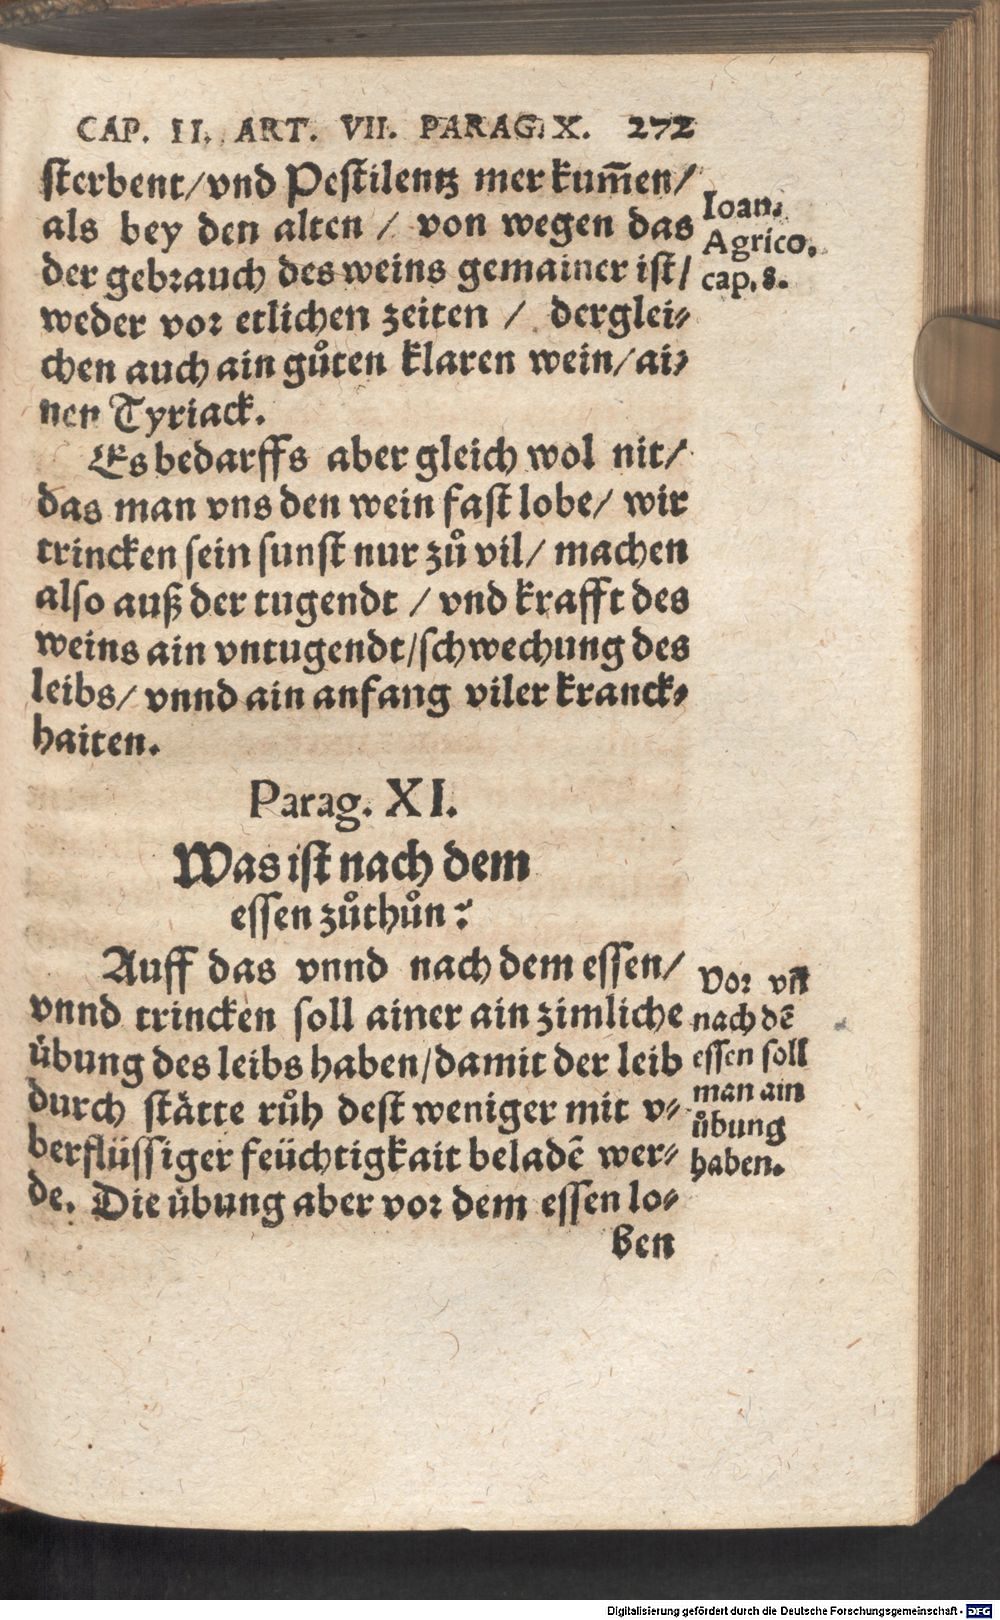 CAP. II. ART. VII. PARAG. X. 272
sterbent/vnd Pestilentz mer kum̃en/
als bey den alten / von wegen das
der gebrauch des weins gemainer ist/
weder vor etlichen zeiten / derglei-
chen auch ain gůten klaren wein/ai-
nen Tyriack.
Ioan.
Agrico.
cap. 8.
Es bedarffs aber gleich wol nit/
das man vns den wein fast lobe/ wir
trincken sein sunst nur zů vil/ machen
also auß der tugendt / vnd krafft des
weins ain vntugendt/schwechung des
leibs/ vnnd ain anfang viler kranck-
haiten.
Parag. XI.
Was ist nach dem
essen zůthůn?
Auff das vnnd nach dem essen/
vnnd trincken soll ainer ain zimliche
übung des leibs haben/damit der leib
durch stätte růh dest weniger mit v-
berflüssiger feüchtigkait beladẽ wer-
de. Die übung aber vor dem essen lo-
ben
Vor vñ
nach dẽ
essen soll
man ain
ůbung
haben.
Digitalisierung gefördert durch die Deutsche Forschungsgemeinschaft - DFG